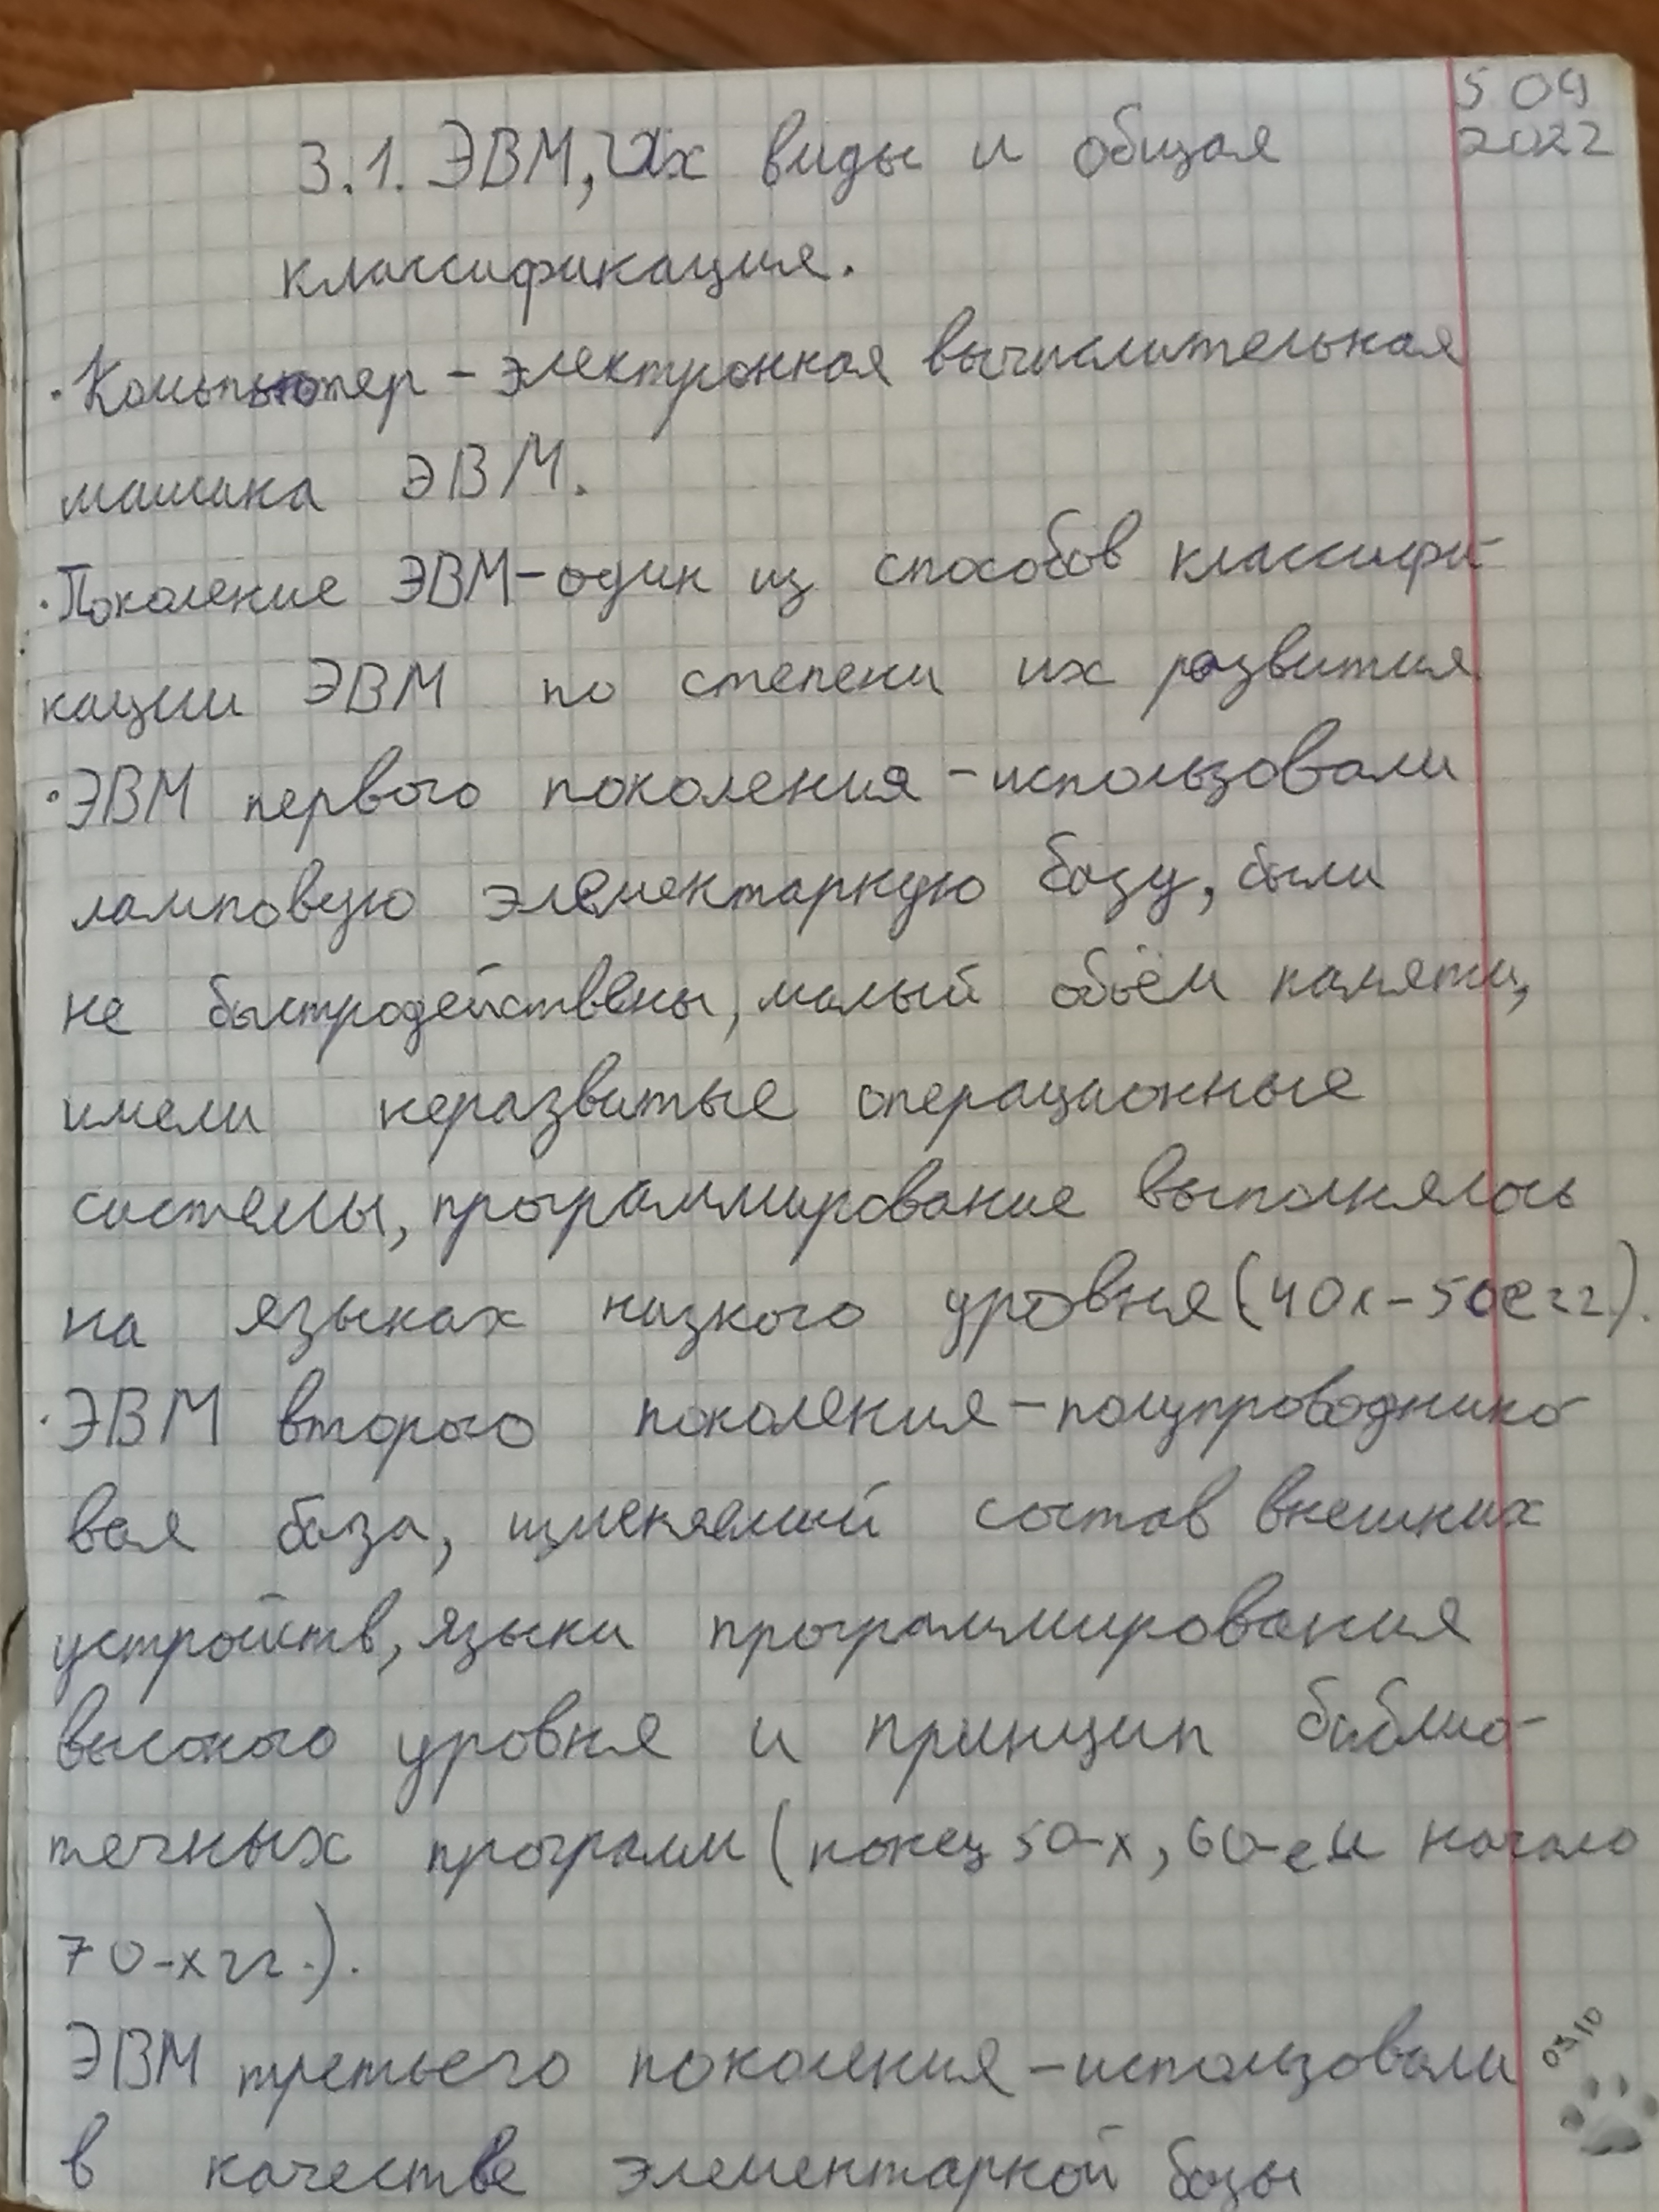 5 09
2022
3.1. ЭВМ, Их виды и общая
классификация.
·Компьютер – электронная вычислительная
машина ЭВМ.
·Поколение ЭВМ-один из способов классифи-
кации ЭВМ по степени их развития
·ЭВМ первого поколения -использовали
ламповую элементарную базу, были
не быстродейственны, малый объём памяти,
имели неразвитые операционные
системы, программирование выполнялось
на языках низкого уровня (40х-50е гг).
·ЭВМ второго поколения-полупроводнико-
вая база, изменяемый состав внешних
устройств, языки программирования
высокого уровня и принцип библио-
течных программ (конец 50-х, 60-е и начало
70-х гг.).
ЭВМ третьего поколения -использовали
в качестве элементарной базы
03.10